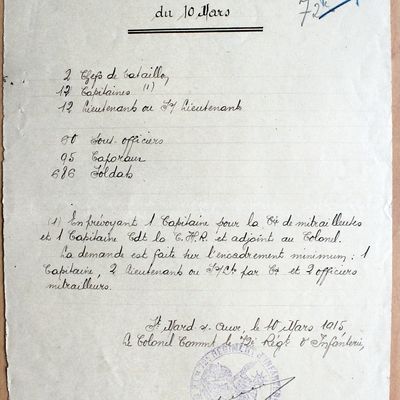 du 10 Mars
72e
2 Chefs de bataillon
17 Capitaines (1)
12 Lieutenants ou S/ Lieutenants
60 Sous-officiers
95 Caporaux
686 Soldats
(1) En prévoyant 1 Capitaine pour la Cie de mitrailleuses
et 1 Capitaine Cdt la C.H.R. et adjoint au Colonel.
La demande est faite sur l'encadrement minimum : 1
Capitaine, 2 Lieutenants ou S/Lt par Cie et 2 officiers
mitrailleurs.
St Mard s- Auve, le 10 Mars 1915,
Le Colonel Commt le 72e Régt d'Infanterie,